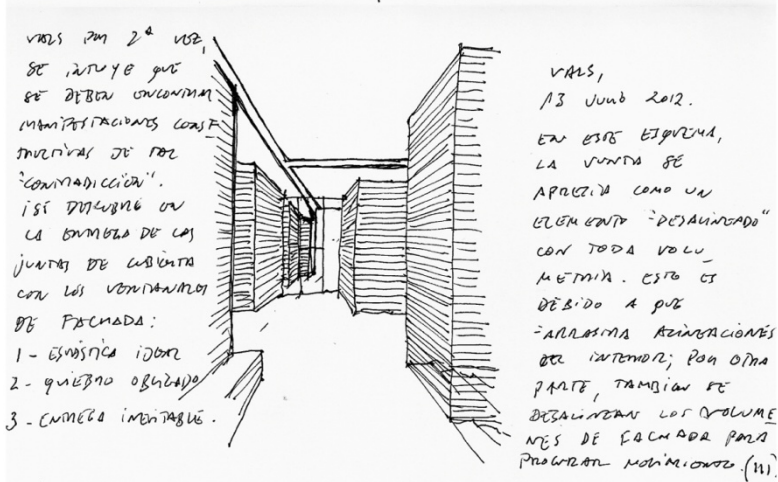 VALS POR 2ª VEZ,
SE INTUYE QUE
SE DEBEN ENCONTRAR
MANIFESTACIONES CONS
TRUCTIVAS DE TAL
"CONTRADICCIÓN".
Y SE DESCUBRE EN
LA ENTREGA DE LAS
JUNTAS DE CUBIERTA
CON LOS VENTANALES
DE FACHADA:
1 - ESTÁSTICA IDEAL
2 - QUIEBRO OBLIGADO
3 - ENTREGA INEVITABLE.
VALS,
13 JUNIO 2012.
EN ESTE ESQUEMA,
LA JUNTA SE
APRECIA COMO UN
ELEMENTO "DESALINEADO"
CON TODA VOLU_
METRÍA. ESTO ES
DEBIDO A QUE
ARRASTRA ALINEACIONES
DEL INTERIOR; POR OTRA
PARTE, TAMBIÉN SE
DESALINEAN LOS VOLUME_
NES DE FACHADA PARA
PROCURAR MOVIMIENTO.